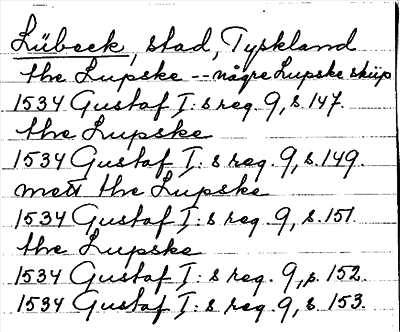 Lübeck, stad, Tyskland
the Lupske -- någre Lupske skiip
1534 Gustaf I: s reg. 9, s. 147.
the Lupske
1534 Gustaf I: s reg. 9, s. 149.
mett the Lupske
1534 Gustaf I: s reg. 9, s. 151.
the Lupske
1534 Gustaf I: s reg. 9, s. 152.
1534 Gustaf I: s reg. 9, s. 153.